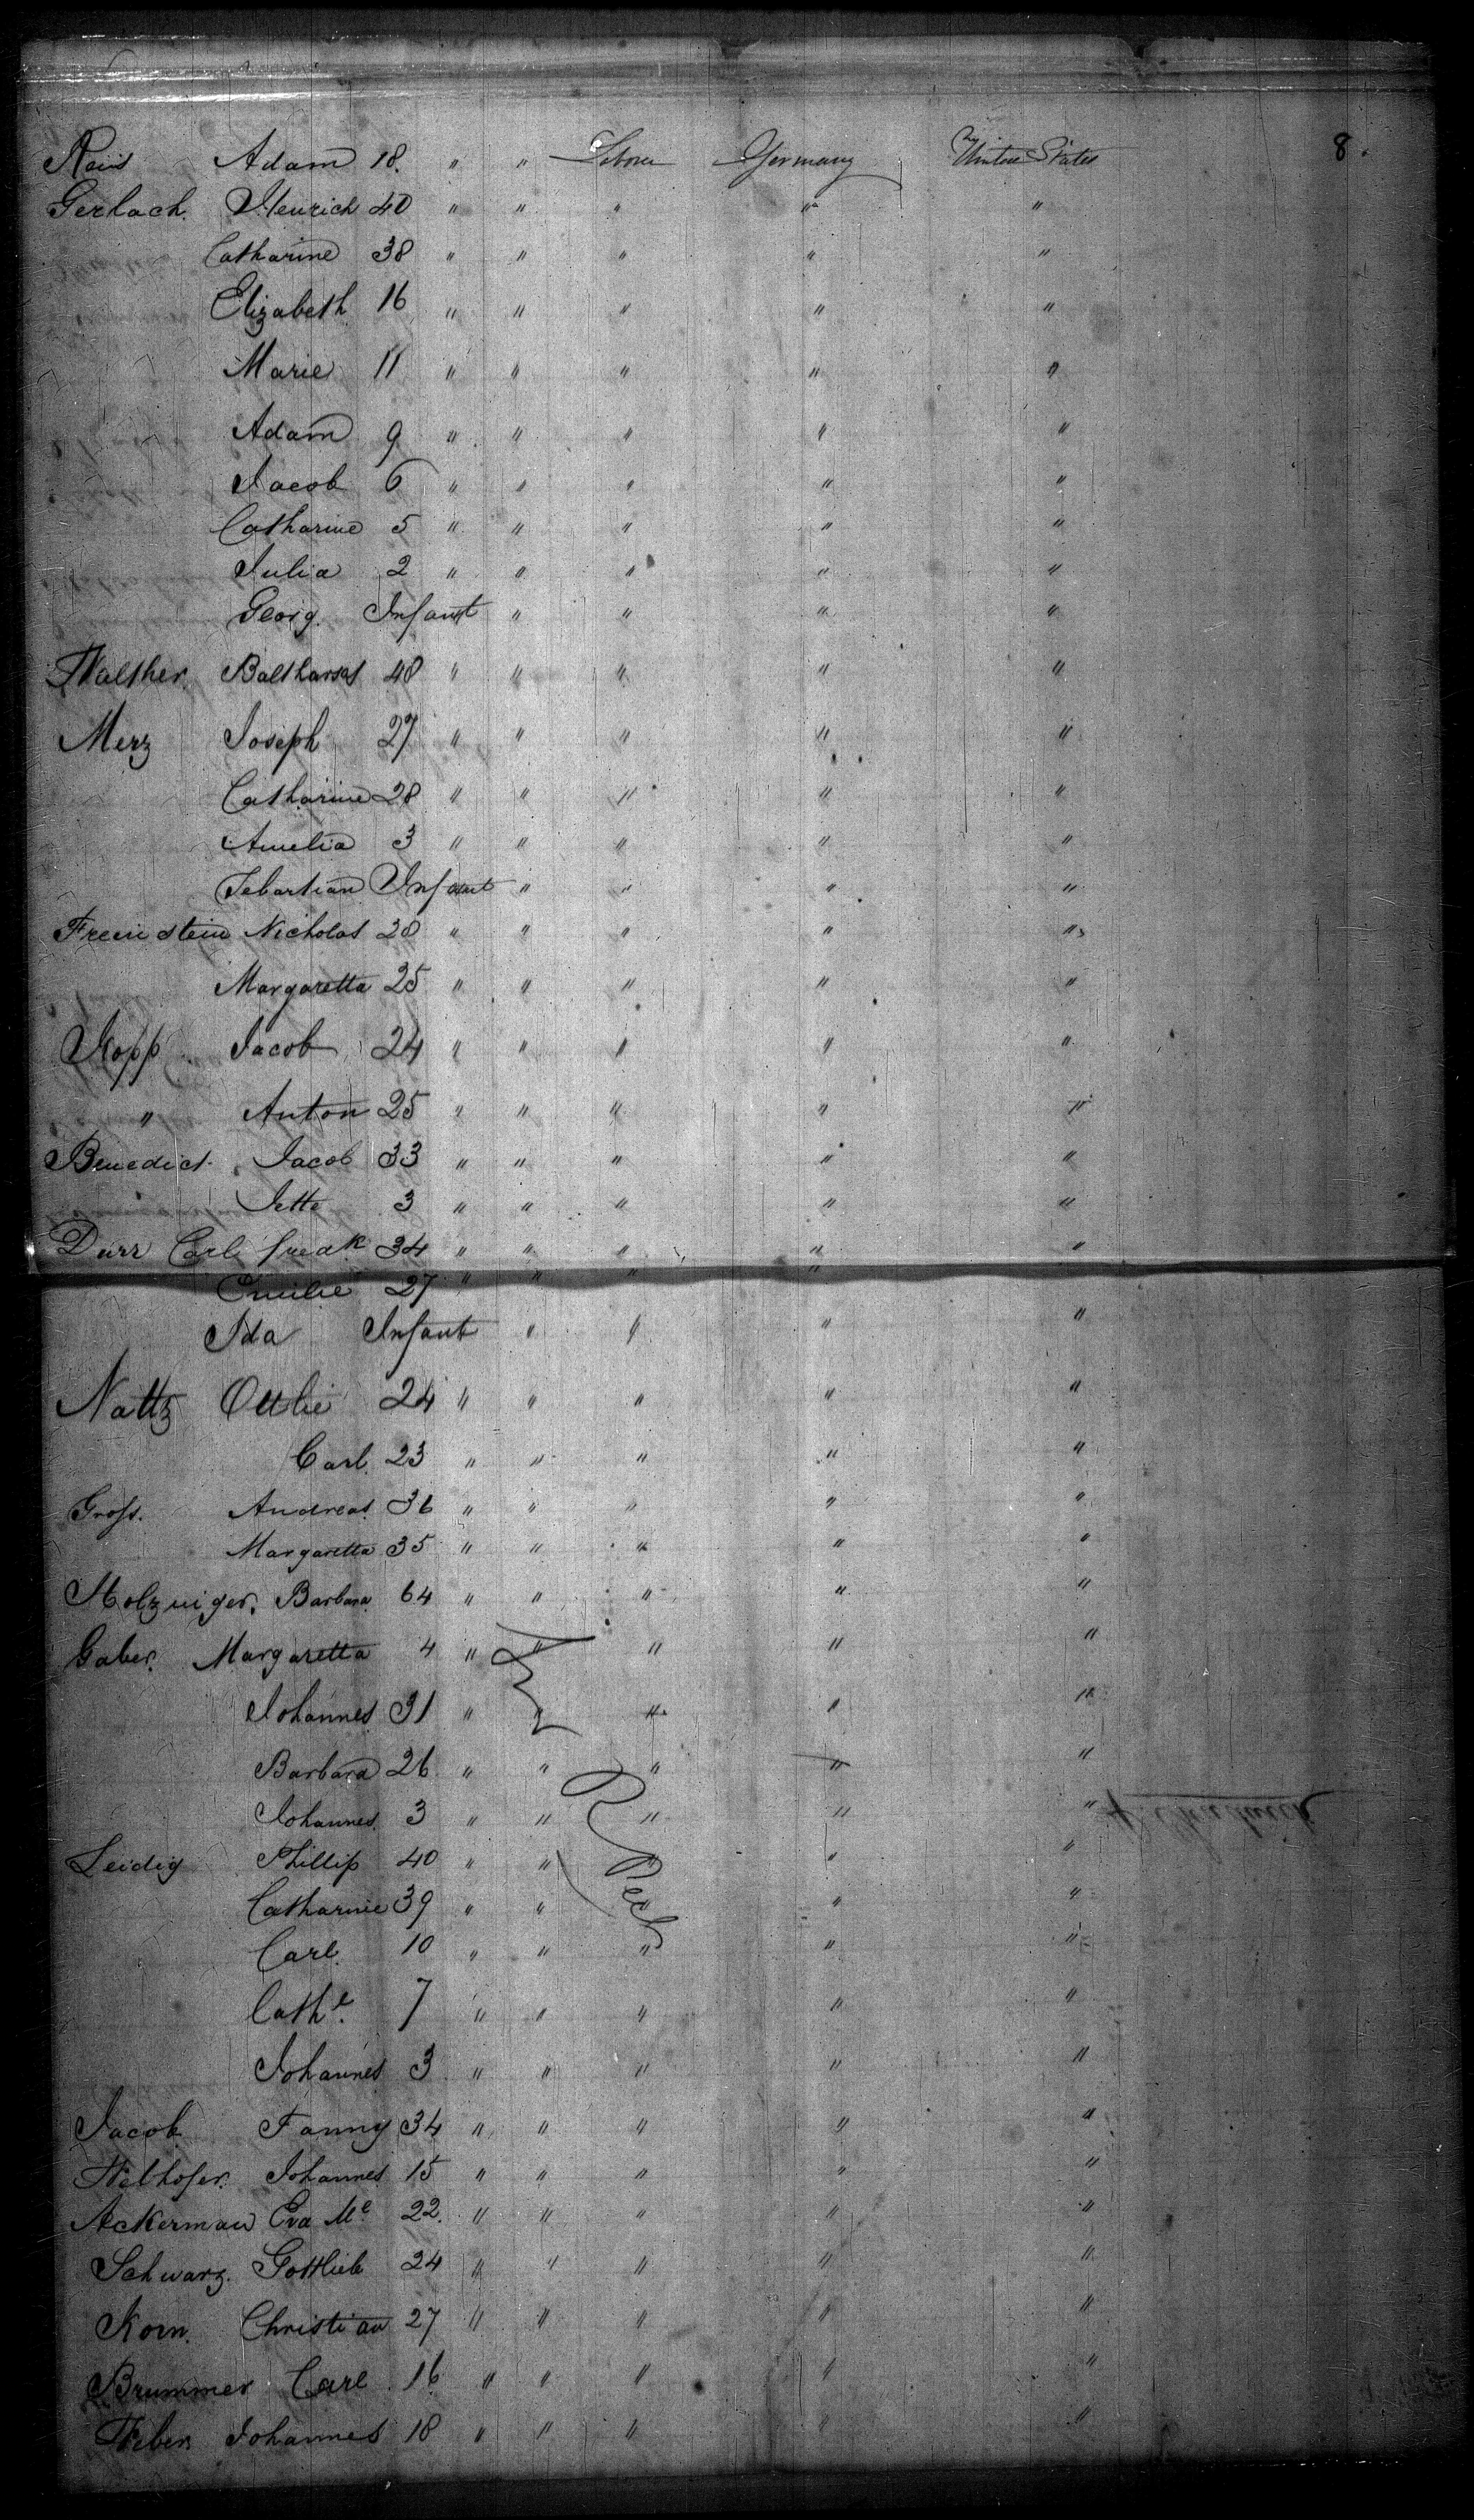 Reis Adam 18. " " Laborer Germany United States 8.
Gerlach. Heinrich 40 " " " " "
Catharine 38 " " " " "
Elizabeth 16 " " " " "
Marie 11 " " " " "
Adam 9 " " " " "
Jacob 6 " " " " "
Catharine 5 " " " " "
Julia 2 " " " " "
Georg. Infant " " " "
Walther. Balthasar 48 " " " " "
Merz Joseph 27 " " " " "
Catharine 28 " " " " "
Amelia 3 " " " " "
Sebastian Infant " " " "
Nicholas 28 " " " " "
Margaretta 25 " " " " "
Kopp Jacob 24 " " " " "
" Anton 25 " " " " "
Benedict. Jacob 33 " " " " "
Jette 3 " " " " "
Durr Carl fredk 34 " " " " "
Emilie 27 " " " "
Ida Infant " " " "
Nattz Ottlie 24 " " " " "
Carl. 23 " " " " "
Groß. Andreas. 36 " " " " "
Margaretta 35 " " " " "
Barbara 64 " " " " "
Gaber. Margaretta 4 " " " " "
Johannes 31 " " " " "
Barbara 26 " " " " "
Johannes. 3 " " " " "
Leidig Phillip 40 " " " "
Catharine 39 " " " " "
Carl. 10 " " " " "
Cathe. 7 " " " " "
Johannes 3 " " " " "
Jacob Fanny 34 " " " " "
Johannes 15 " " " " "
Ackerman Eva Me 22. " " " " "
Schwarz. Gottlieb 24 " " " " "
Korn. Christian 27 " " " " "
Brummer Carl 16 " " " " "
Weber Johannes 18 " " " " "